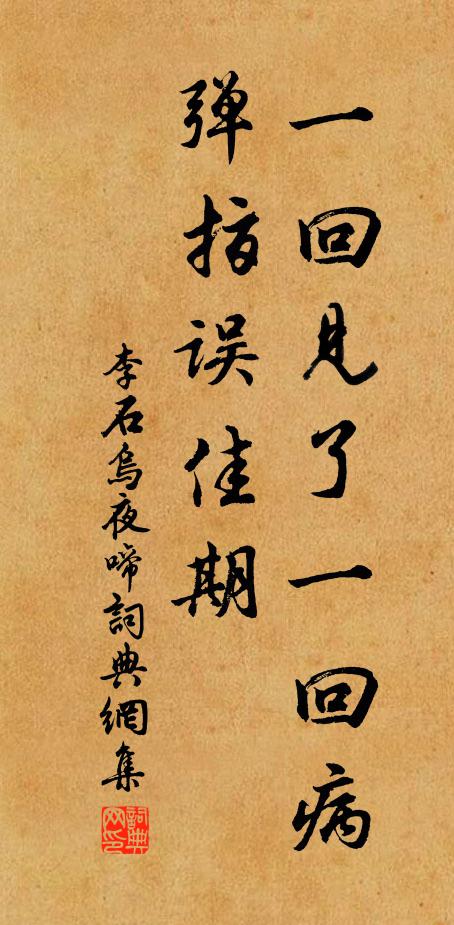 一回见了一回病
弹指误佳期
李石烏夜啼詞典網集
詞典网印